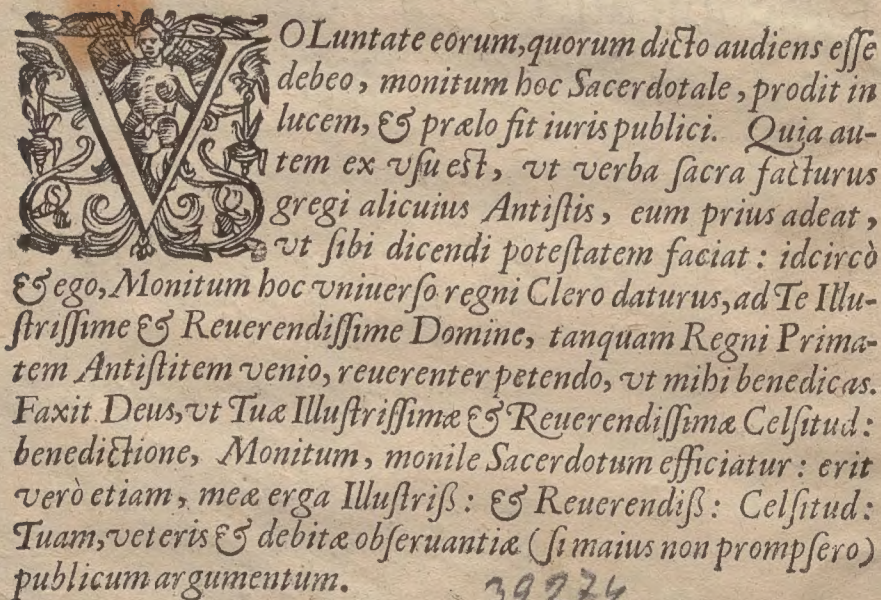 VOLuntate eorum, quorum dicto audiens esse
debeo, monitum hoc Sacerdotale, prodit in
lucem, & prælo fit iuris publici. Quia au-
tem ex vsu est, vt verba sacra facturus
gregi alicuius Antistis, eum prius adeat,
vt sibi dicendi potestatem faciat: idcircò
& ego, Monitum hoc vniuerso regni Clero daturus, ad Te Illu-
strissime & Reuerendissime Domine, tanquam Regni Prima-
tem Antistitem venio, reuerenter petendo, vt mihi benedicas.
Faxit Deus, vt Tuæ Illustrissimæ & Reuerendissimæ Celsitud:
benedictione, Monitum, monile Sacerdotum efficiatur: erit
verò etiam, meæ erga Illustriß: & Reuerendiß: Celsitud:
Tuam, veteris & debitæ obseruantiæ (si maius non prompsero)
publicum argumentum.
39274